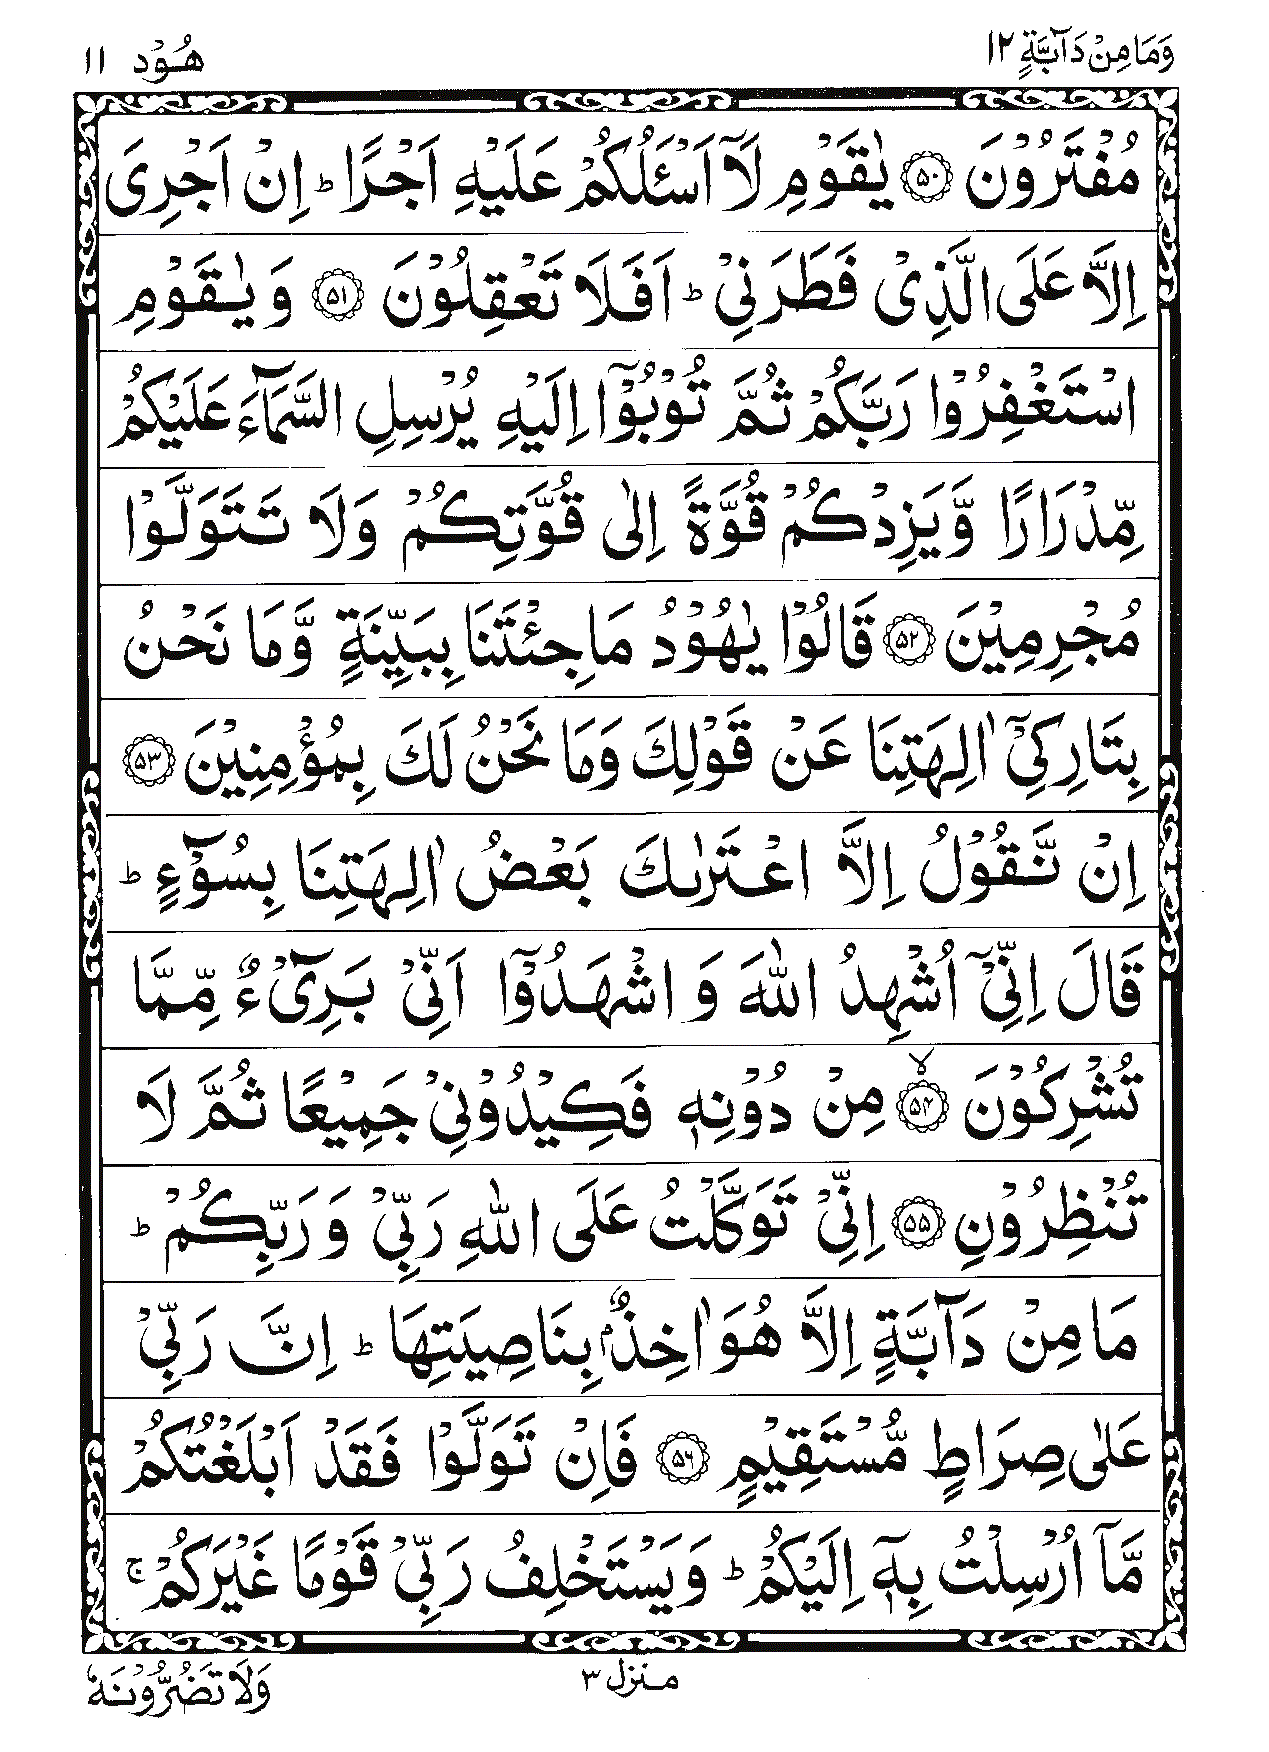 وَمَا مِنْ دَآبَّةٍ ١٢
هُوْد ١١
مُفْتَرُوْنَ ۝٥٠ يٰقَوْمِ لَاۤ اَسْـَٔلُكُمْ عَلَيْهِ اَجْرًا ؕ اِنْ اَجْرِىَ
اِلَّا عَلَى الَّذِىْ فَطَرَنِىْ ؕ اَفَلَا تَعْقِلُوْنَ ۝٥١ وَ يٰقَوْمِ
اسْتَغْفِرُوْا رَبَّكُمْ ثُمَّ تُوْبُوْۤا اِلَيْهِ يُرْسِلِ السَّمَآءَ عَلَيْكُمْ
مِّدْرَارًا وَّيَزِدْكُمْ قُوَّةً اِلٰى قُوَّتِكُمْ وَلَا تَتَوَلَّوْا
مُجْرِمِيْنَ ۝٥٢ قَالُوْا يٰهُوْدُ مَا جِئْتَنَا بِبَيِّنَةٍ وَّمَا نَحْنُ
بِتَارِكِىْۤ اٰلِهَتِنَا عَنْ قَوْلِكَ وَمَا نَحْنُ لَكَ بِمُؤْمِنِيْنَ ۝٥٣
اِنْ نَّقُوْلُ اِلَّا اعْتَرٰىكَ بَعْضُ اٰلِهَتِنَا بِسُوْٓءٍ ؕ
قَالَ اِنِّىْۤ اُشْهِدُ اللّٰهَ وَ اشْهَدُوْۤا اَنِّىْ بَرِىْٓءٌ مِّمَّا
تُشْرِكُوْنَ ۙ‏۝٥٤ مِنْ دُوْنِهٖ فَكِيْدُوْنِىْ جَمِيْعًا ثُمَّ لَا
تُنْظِرُوْنِ ۝٥٥ اِنِّىْ تَوَكَّلْتُ عَلَى اللّٰهِ رَبِّىْ وَ رَبِّكُمْ ؕ
مَا مِنْ دَآبَّةٍ اِلَّا هُوَ اٰخِذٌۢ بِنَاصِيَتِهَا ؕ اِنَّ رَبِّىْ
عَلٰى صِرَاطٍ مُّسْتَقِيْمٍ ۝٥٦ فَاِنْ تَوَلَّوْا فَقَدْ اَبْلَغْتُكُمْ
مَّاۤ اُرْسِلْتُ بِهٖۤ اِلَيْكُمْ ؕ وَيَسْتَخْلِفُ رَبِّىْ قَوْمًا غَيْرَكُمْ ۚ
منزل ٣
وَلَا تَضُرُّوْنَهٗ